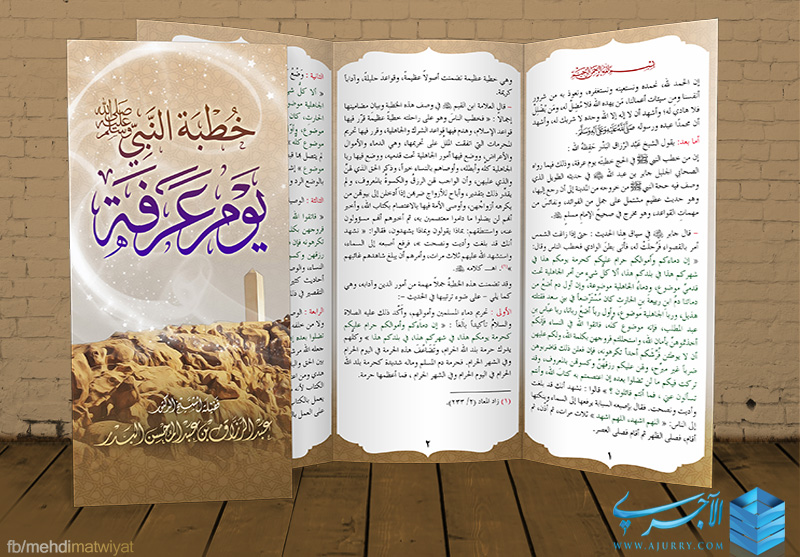 خُطْبَة النَّبِيِّ ﷺ
يَوْمَ عَرَفَةَ
فضيلة الشيخ الدكتور
عبد الرزاق بن عبد المحسن البدر
بسم الله الرحمن الرحيم
إن الحمد لله، نحمده ونستعينه ونستغفره، ونعوذ به من شرور
أنفسنا ومن سيئات أعمالنا، مَن يهده الله فلا مُضل له، ومَن يُضلل
فلا هادي له؛ وأشهد أن لا إله إلا الله وحده لا شريك له، وأشهد
أن محمدًا عبده ورسوله ﷺ
أما بعد: يقول الشيخ عَبْد الرَّزَّاق البَدْر حَفِظَهُ الله:
إن من خطب النبي ﷺ في الحج خطبتَه يوم عرفة، وذلك فيما رواه
الصحابي الجليل جابر بن عبد الله ﷺ في حديثه الطويل الذي
وصف فيه حجة النبي ﷺ من خروجه من المدينة إلى أن رجع إليها،
وهو حديث عظيم مشتمل على جمل من الفوائد، ونفائس من
مهمات القواعد، وهو مخرج في صحيح الإمام مسلم
- قال جابر في سياق هذا الحديث: حتى إذا زاغت الشمس
أمر بالقصواء فرُحلت له، فأتى بطنَ الوادي فخطب الناس وقال:
« إن دماءكم وأموالكم حرام عليكم كحرمة يومكم هذا في
شهركم هذا في بلدكم هذا، ألا كل شيء من أمر الجاهلية تحت
قدميَّ موضوع، ودماءُ الجاهلية موضوعة، وإن أول دم أضع من
دمائنا دمُ ابن ربيعة بن الحارث كان مُسْتَرْضعًا في بني سعد فقتلته
هذيل، وربا الجاهلية موضوع، وأول ربا أضع ربانا، ربا عباس بن
عبد المطلب، فإنه موضوع كله، فاتقوا الله في النساء فإنكم
أخذتموهنّ بأمان الله، واستحللتم فروجهن بكلمة الله، ولكم عليهن
أن لا يوطئن فُرُشَكم أحدًا تكرهونه، فإن فعلن ذلك فاضربوهن
ضربًا غير مبرّح، ولهن عليكم رزقُهنّ وكسوتُهن بالمعروف، وقد
تركت فيكم ما لن تضلوا بعده إن اعتصمتم به كتاب الله، وأنتم
تُسألون عني، فما أنتم قائلون؟ » قالوا: نشهد أنك قد بلغت
وأديت ونصحت. فقال بإصبعه السبابة يرفعها إلى السماء وينكتها
إلى الناس: « اللهم اشهد، اللهم اشهد » ثلاث مرات، ثم أذّن، ثم
أقام، فصلى الظهر ثم أقام فصلى العصر.
١
وهي خطبة عظيمة تضمنت أصولًا عظيمة، وقواعدَ جليلة، وآدابًا
كريمة.
- قال العلامة ابن القيم في وصف هذه الخطبة وبيان مضامينها
إجمالًا: « فخطب الناسَ وهو على راحلته خطبةً عظيمة قرّر فيها
قواعدَ الإسلام، وهدم فيها قواعدَ الشرك والجاهلية، وقرر فيها تحريم
المحرمات التي اتفقت الملل على تحريمها، وهي الدماء والأموال
والأعراض، ووضع فيها أمورَ الجاهلية تحت قدميه، ووضع فيها ربا
الجاهلية كلَّه وأبطله، وأوصاهم بالنساء خيرًا، وذكر الحق الذي لهنّ
والذي عليهن، وأن الواجب لهن الرزق والكسوة بالمعروف، ولم
يقدّر ذلك بتقدير، وأباح للأزواج ضربهن إذا أدخلن إلى بيوتهن من
يكرهه أزواجهن، وأوصى الأمةَ فيها بالاعتصام بكتاب الله، وأخبر
أنهم لن يضلوا ما داموا معتصمين به، ثم أخبرهم أنهم مسؤولون
عنه، واستنطقهم: بماذا يقولون وبماذا يشهدون، فقالوا: « نشهد
أنك قد بلغت وأديت ونصحت »، فرفع أُصبعه إلى السماء،
واستشهد الله عليهم ثلاث مرات، وأمرهم أن يبلغ شاهدهم غائبهم
» (١). اهـ كلامه
وقد تضمنت هذه الخطبةُ جملًا مهمة من أمور الدين وآدابه، وهي
كما يلي - على ضوء ترتيبها في الحديث -:
الأولى: تحريم دماء المسلمين وأموالهم، وأكّد ذلك عليه الصلاة
والسلامُ تأكيدًا بالغًا: « إن دماءكم وأموالكم حرام عليكم
كحرمة يومكم هذا، في شهركم هذا، في بلدكم هذا »؛ وكلهم
يدرك حرمة بلد الله الحرام، وتَضَاعُفَ هذه الحرمة في اليوم الحرام
وفي الشهر الحرام. فحرمة دم المسلم وماله شديدة كحرمة بلد الله
الحرام في اليوم الحرام وفي الشهر الحرام ، فما أعظمها حرمة.
(١) زاد المعاد (٢/ ٢٣٣).
٢
الثانية : وَضْعُ
« ألا كلُّ
الجاهلية
الحارث، كان
موضوع، وأول
موضوع كله
الثالثة: الوصية
« فاتقوا الله
فروجهن بكلمة
تكرهونه فإن
رزقهن وكسوتهن
النساء، والوصية
أحاديث كثيرة
التقصير في ذلك
الرابعة: الوصية
fb/mehdimatwiyat
الآجري
WWW.AJURRY.COM